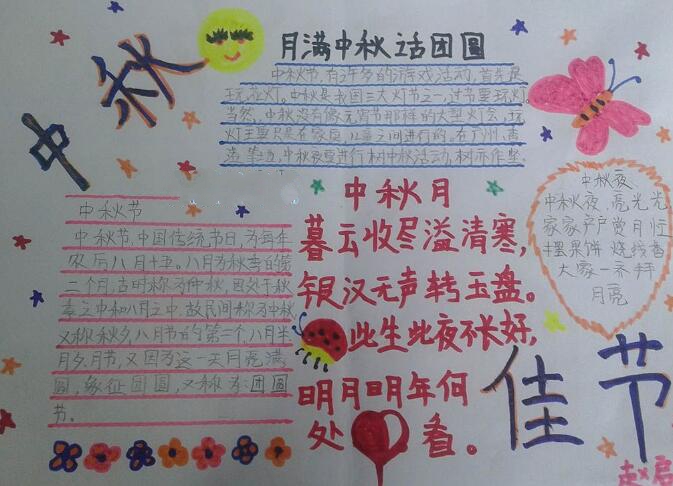 中秋
月满中秋话团圆
中秋节,有许多的游戏活动,首先是
玩花灯。中秋是我国三大灯节之一,过节要玩灯。
当然,中秋没有像元宵节那样的大型灯会,玩
灯主要只是在家庭,儿童之间进行的。在广州、南
等边,中秋夜要进行树中秋活动,树亦作竖
中秋节
中秋节,中国传统节日,为每年
农历八月十五。八月为秋季的第
二个月,古时称为仲秋,因处于秋
季之中和八月之中,故民间称为中秋
又称秋夕,八月节的第二个,八月半
月夕,月节,又因为这一天月亮满
圆,象征团圆,又称为:团圆
节。
中秋月
暮云收尽溢清寒,
银汉无声转玉盘。
此生此夜不长好,
明月明年何
处看。
中秋夜
中秋夜,亮光光
家家户户赏月忙
摆果饼 烧线香
大家一齐拜
月亮
佳节
赵